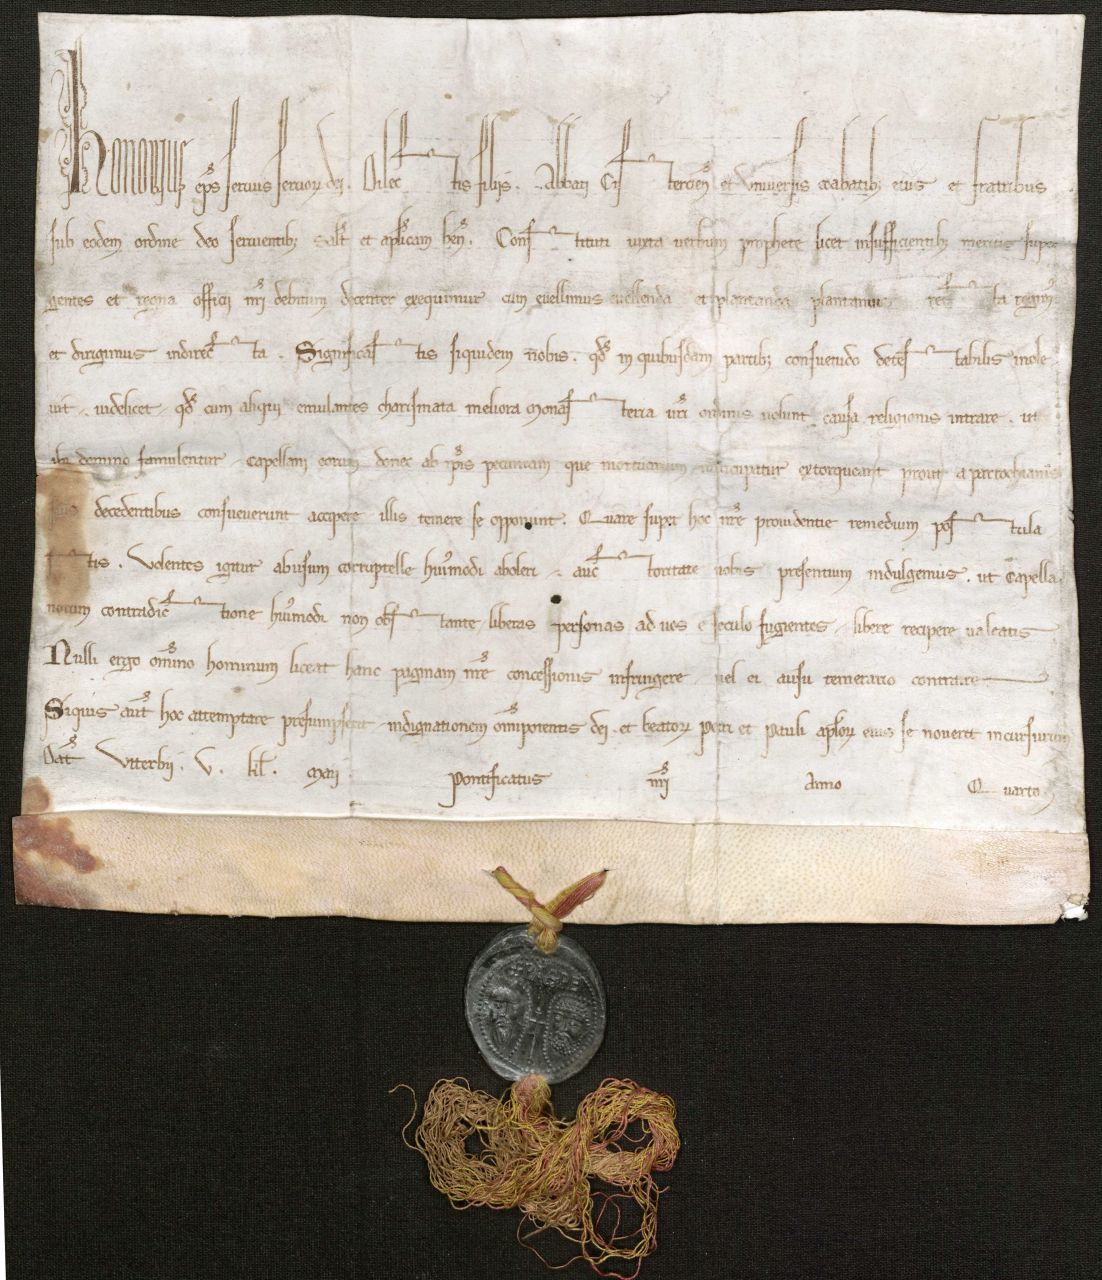 Honorius ep̄s servus servoꝝ dei. Dilectis filiis .. Abbati Cistercieñ et universis coabatibꝫ eius et fratribus
sub eodem ordine deo servientibꝫ salt̄ et aplicam beñ. Constituti iuxta verbum prophete licet insufficientibꝫ meritis super
gentes et regna officii nr̄i debitum decenter exequimur cum evellimus evellenda et plantanda plantamus recta regim̄
et dirigimus indirecta. Significastis siquidem nobis. qd̄ in quibusdam partibꝫ consuetudo detestabilis inole
vit. videlicet qd̄ cum aliqui emulantes charismata meliora monasteria vr̄i ordinis volunt causa religionis intrare. ut
ibi domino famulentur capellani eorum donec ab ip̄is pecuniam que mortuarium nuncupatur extorqueant prout a parrochianis
suis decedentibus consueverunt accipere illis temere se opponunt. Quare super hoc nr̄e providentie remedium postula
stis. Volentes igitur abusum corruptelle hui̾modi aboleri auctoritate vobis presentium indulgemus. ut Capella
norum contradictione hui̾modi non obstante liberas personas ad vos e seculo fugientes libere recipere valeatis
Nulli ergo om̄ino hominum liceat hanc paginam nr̄e concessionis infringere vel ei ausu temerario contraire
Siquis aut̄ hoc attemptare presumpserit indignationem om̄ipotentis dei. et beatoꝝ Petri et Pauli apl̄oꝝ eius se noverit incursurum
Dat̄ Viterbii. V. kl̄. Maii. Pontificatus nr̄i Anno Quarto